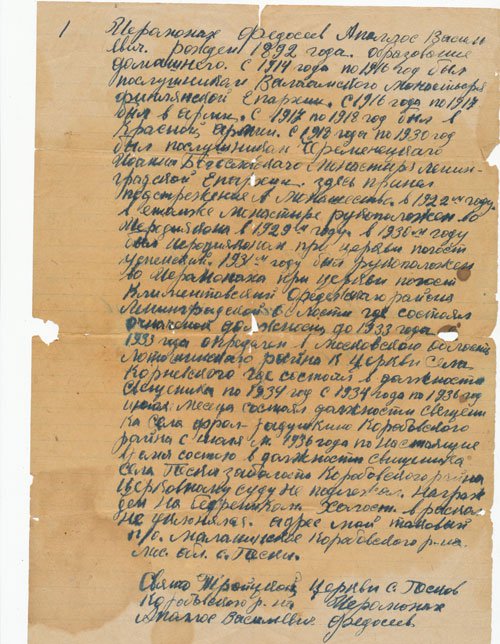 1 Иеромонах Федосеев Апаллос Василь
евич. рожден 1892 года. образование
домашнего. С 1914 года по 1916 год был
послушникам Валаамского Монастыря
Финлянской Епархии. С 1916 года по 1917
был в армии. С 1917 по 1918 год был в
Красной армии. С 1918 года по 1930 год
был послушникам Черменецкого
Иоанна Богословского Монастиря Ленин-
градской Епархии. здесь принял
подстрежение в Монашество в 1922-м году.
в этомже Монастыре рукоположен во
Иеродиякона в 1929-м году в 1930-м году
был Иеродияконам при церкви погост
успенский. 1931-м году был рукоположен
во Иеромонаха при церкви погост
Климентовский района
Ленинградской области где состоял
должности до 1933 года
1933 года определен в Московскою область
района к Церкви Села
где состоял в должности
Священика по 1934 год с 1934 года по 1936 год
июля месяца состоял должности священи
ка Села Коробовского
района с июля м. 1936 года по настоящие
время состою в должности священика
Села Пески Коробовского района
Церковному суду не подлежал. Награж
ден Набедреником Холост. в раскол
не уклонялся. адрес мой таковый
п/о. Малалинское Коробовского р-на.
Мос. обл. с. Пески.
Свято Троицкой Церкви с. Песков
Коробовского р-на Иеромонах
Апаллос Васильевич Федосеев